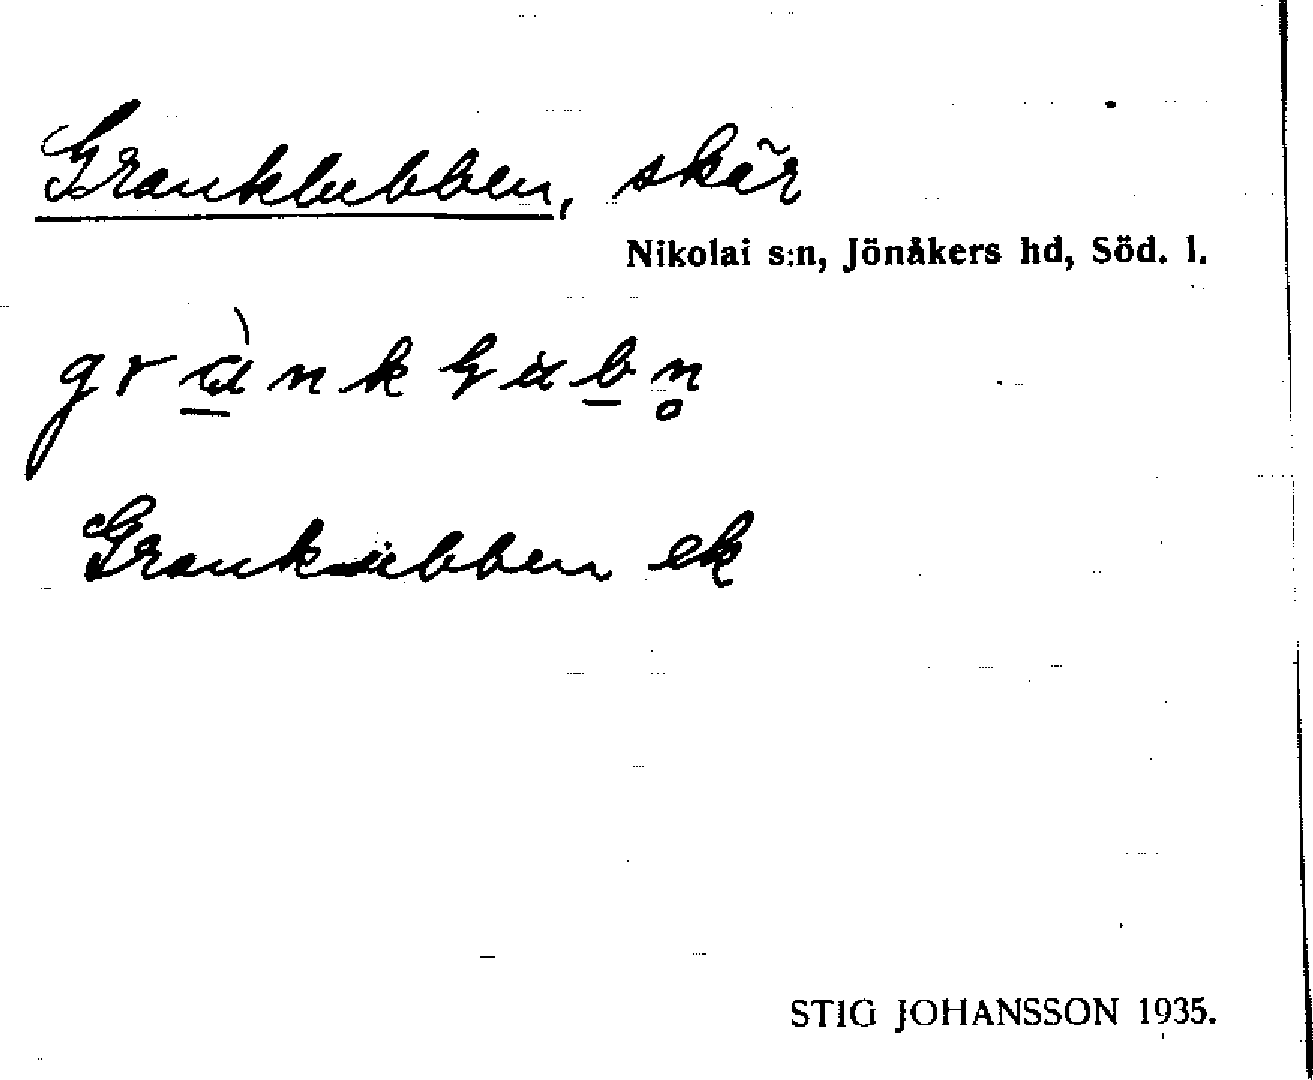 Granklubben, skär
Nikolai s:n, Jönåkers hd, Söd. l.
Granksubben ek
STIG JOHANSSON 1935.